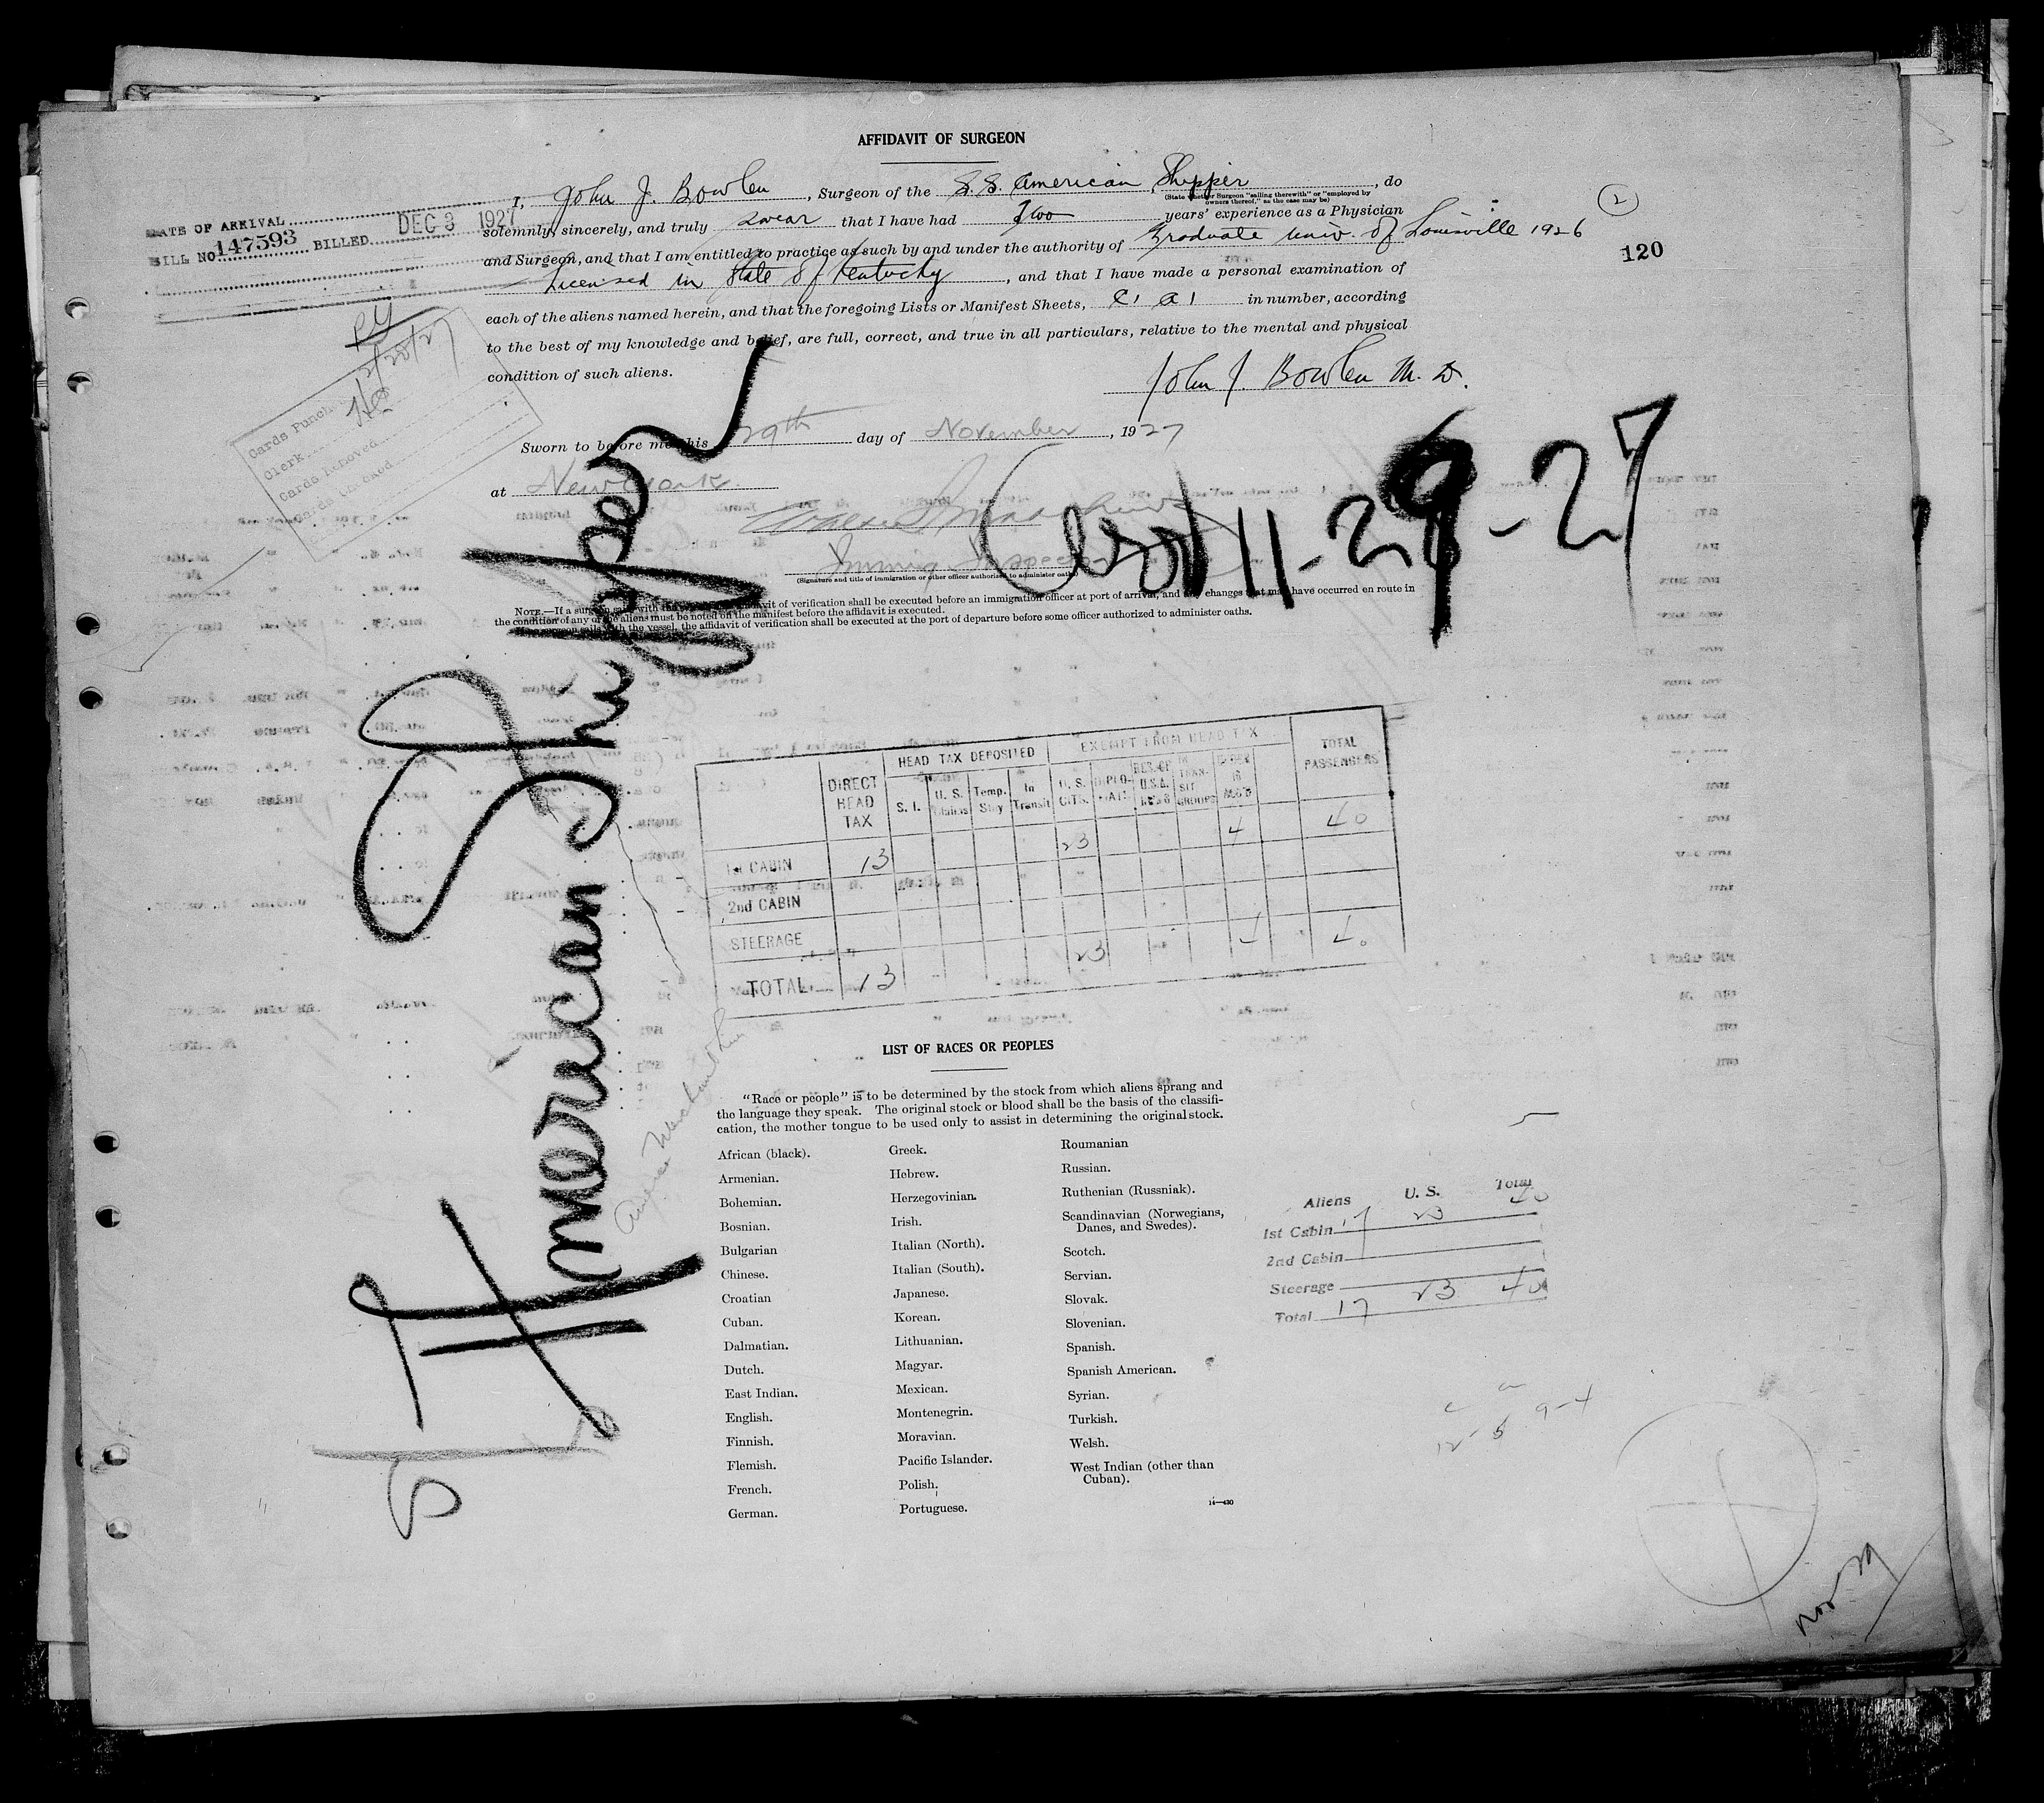 AFFIDAVIT OF SURGEON
I, John J. Bowlen, Surgeon of the S.S. American Shipper, do
(State whether Surgeon "sailing therewith" or "employed by
owners thereof," as the case may be)
solemnly, sincerely, and truly swear that I have had Two years' experience as a Physician
and Surgeon, and that I am entitled to practice as such by and under the authority of Graduate Univ. of Louisville 1926
Licensed in State of Kentucky, and that I have made a personal examination of
each of the aliens named herein, and that the foregoing Lists or Manifest Sheets, in number, according
to the best of my knowledge and belief, are full, correct, and true in all particulars, relative to the mental and physical
condition of such aliens.
John J. Bowlen M.D.
Sworn to before me this 29th day of November, 1927
at New York
Immig Inspector
(Signature and title of immigration or other officer authorized to administer oath)
NOTE.—If a surgeon sails with the vessel, affidavit of verification shall be executed before an immigration officer at port of arrival, and any changes that may have occurred en route in
the condition of any of the aliens must be noted on the manifest before the affidavit is executed.
surgeon sails with the vessel, the affidavit of verification shall be executed at the port of departure before some officer authorized to administer oaths.
DATE OF ARRIVAL
BILL NO 147593 BILLED DEC 3 1927
2
120
Cards Punch
Clerk
Cards Removed
Cards Checked
American Shipper
11-29-27
HEAD TAX DEPOSITED EXEMPT FROM HEAD TAX TOTAL PASSENGERS
DIRECT HEAD TAX S. I. U. S. Temp. Stay In Transit U. S. CITS. DIPLO- RES. OF U.S.A. TRAN- SIT GROUPS
1st CABIN 13 23 4 40
2nd CABIN
STEERAGE
TOTAL 13 23 4 40
LIST OF RACES OR PEOPLES
"Race or people" is to be determined by the stock from which aliens sprang and
the language they speak. The original stock or blood shall be the basis of the classifi-
cation, the mother tongue to be used only to assist in determining the original stock.
African (black).
Armenian.
Bohemian.
Bosnian.
Bulgarian
Chinese.
Croatian
Cuban.
Dalmatian.
Dutch.
East Indian.
English.
Finnish.
Flemish.
French.
German.
Greek.
Hebrew.
Herzegovinian.
Irish.
Italian (North).
Italian (South).
Japanese.
Korean.
Lithuanian.
Magyar.
Mexican.
Montenegrin.
Moravian.
Pacific Islander.
Polish.
Portuguese.
Roumanian
Russian.
Ruthenian (Russniak).
Scandinavian (Norwegians,
Danes, and Swedes).
Scotch.
Servian.
Slovak.
Slovenian.
Spanish.
Spanish American.
Syrian.
Turkish.
Welsh.
West Indian (other than
Cuban).
14—430
Aliens U. S. Total
1st Cabin 17 23 40
2nd Cabin
Steerage
Total 17 23 40
9-4
Nov 29